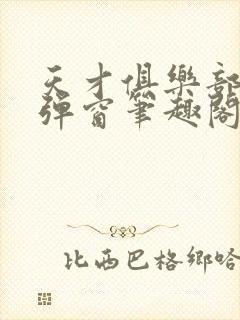 天才俱樂部
彈窗筆趣閣
比西巴格鄉哈